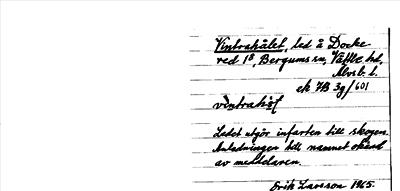 Vintrahålet, led å Docke
red 1⁸, Bergums sn, Vättle hd,
Älvsb. l.
ek 7B 3g/601
vintrahøt
Ledet utgör infarten till skogen.
Anledningen till namnet okänd
av meddelaren.
Erik Larsson 1965.